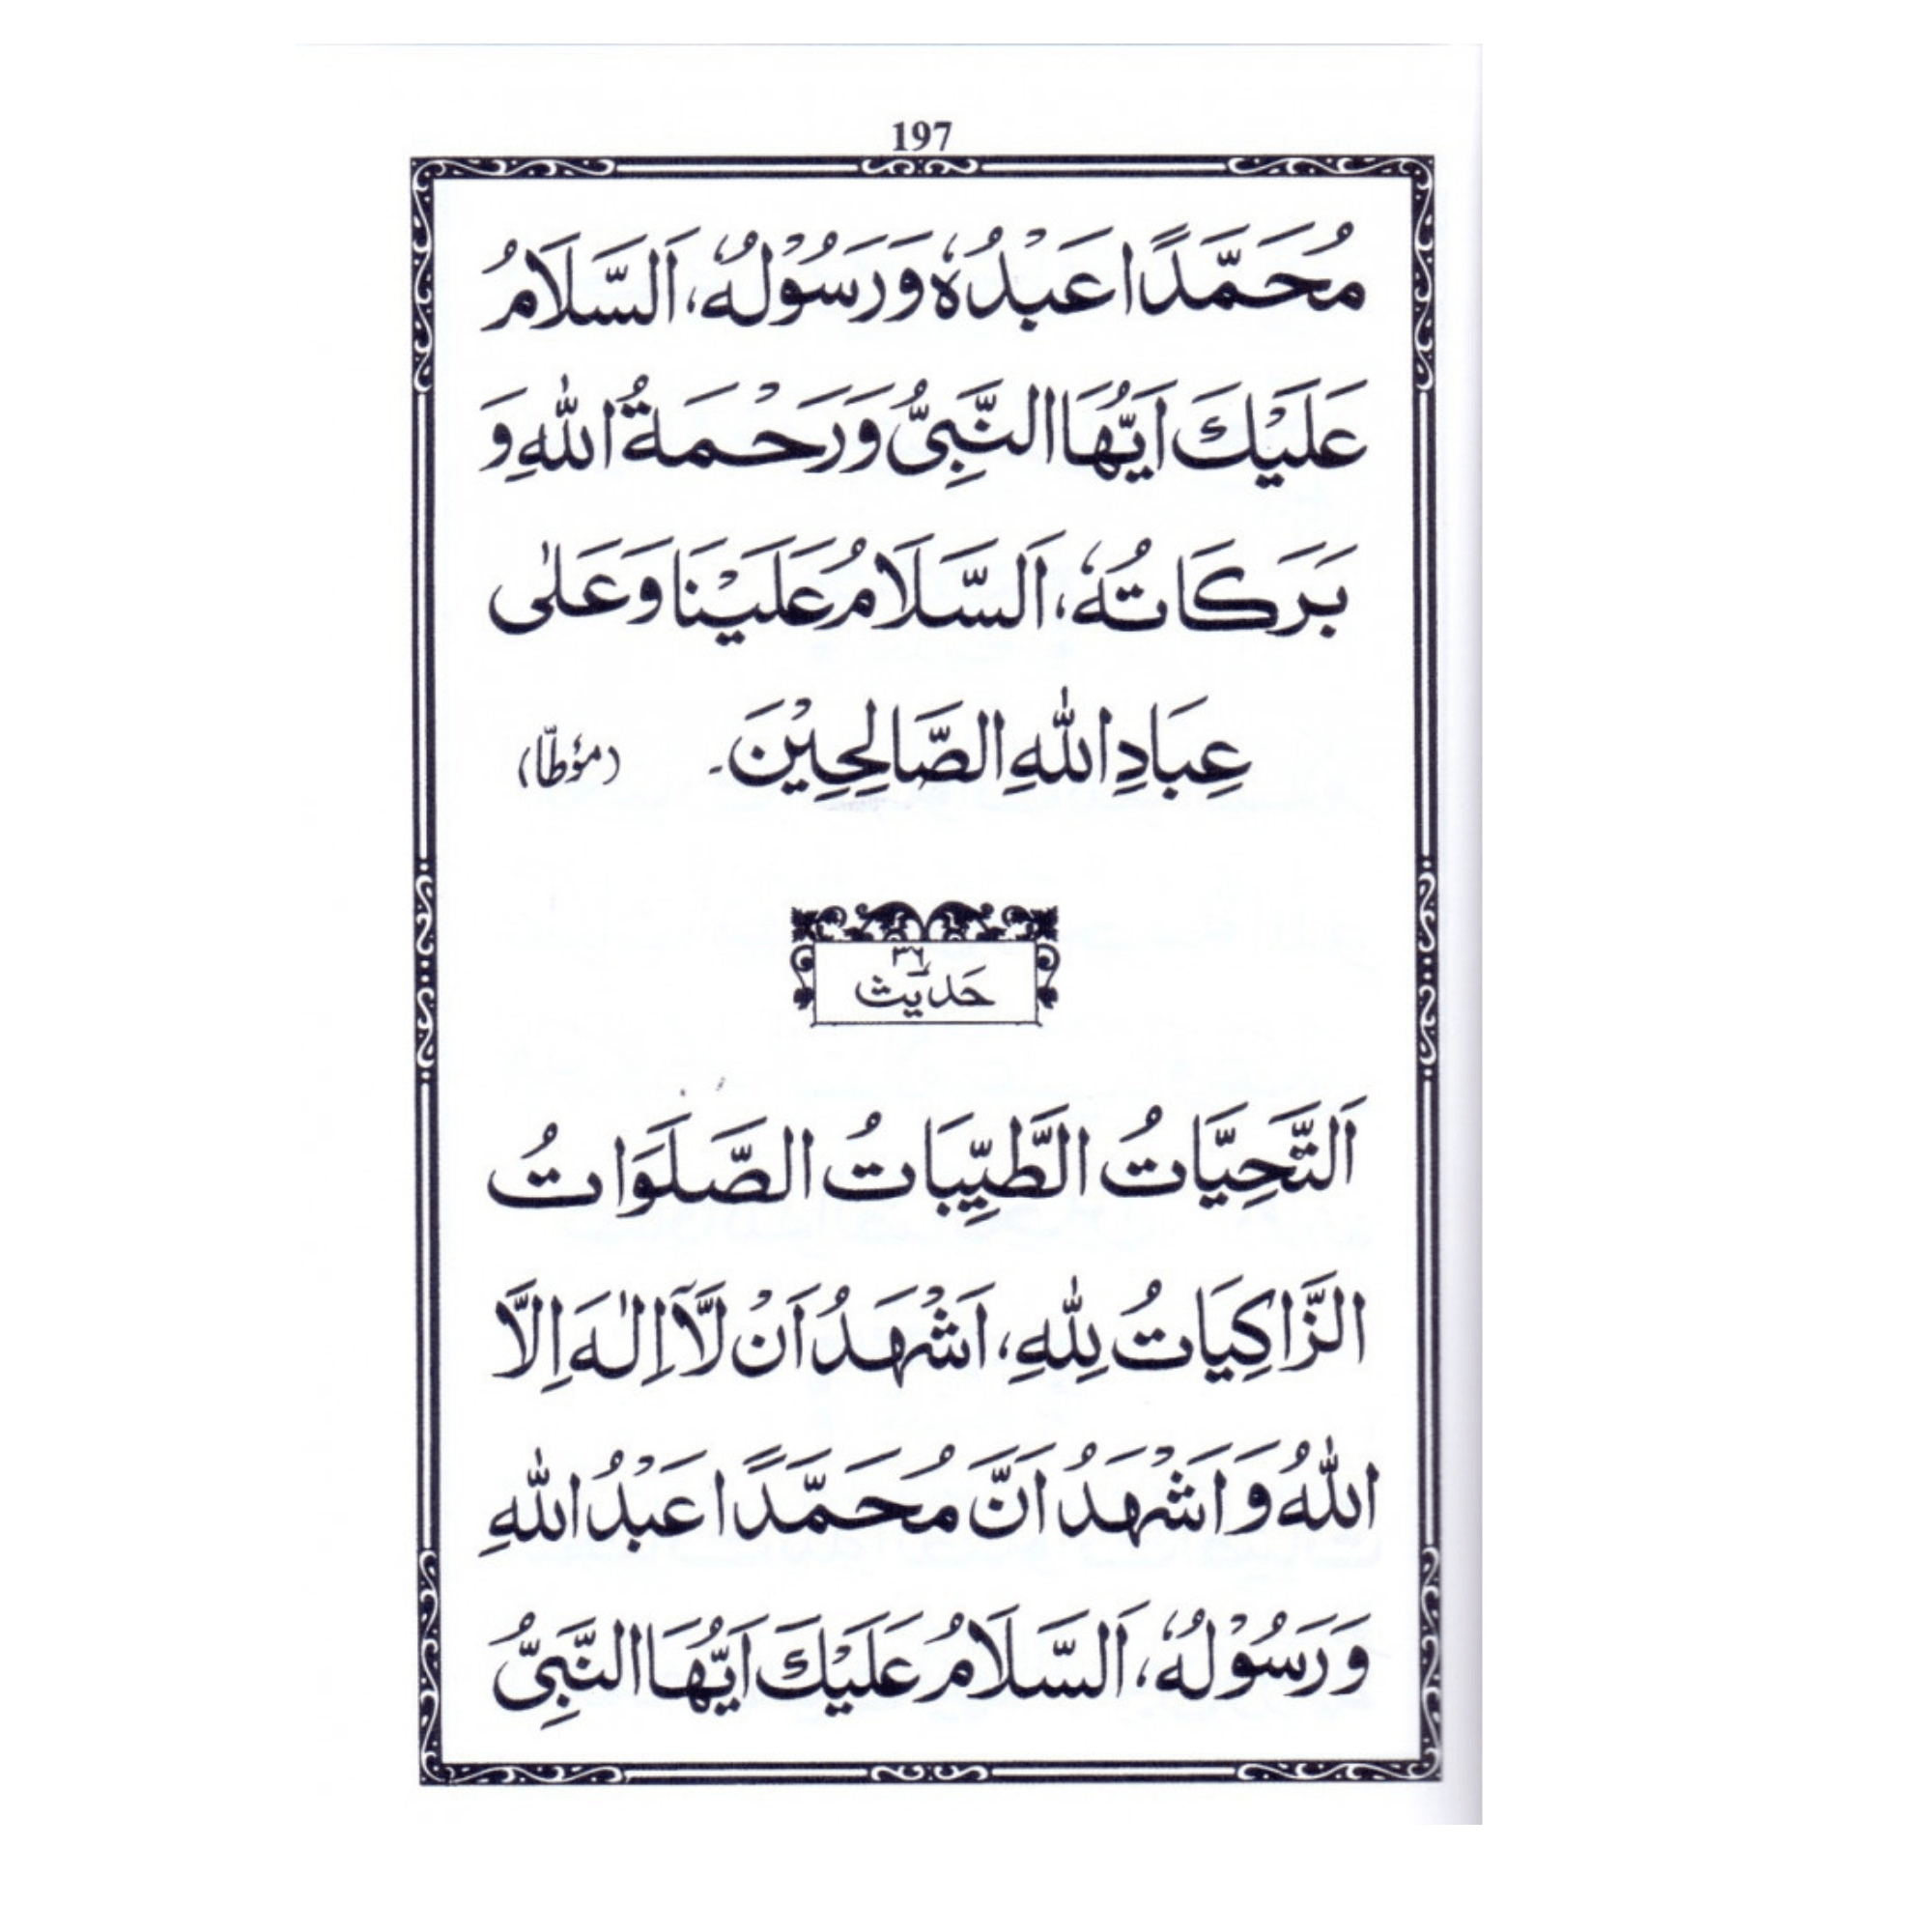 197
مُحَمَّدًا عَبْدُهٗ وَرَسُوْلُهٗ، اَلسَّلَامُ
عَلَيْكَ اَيُّهَا النَّبِىُّ وَرَحْمَةُ اللّٰهِ وَ
بَرَكَاتُهٗ، اَلسَّلَامُ عَلَيْنَا وَعَلٰى
عِبَادِ اللّٰهِ الصَّالِحِيْنَ۔ (مؤطّا)
٣٦
حَديث
اَلتَّحِيَّاتُ الطَّيِّبَاتُ الصَّلَوَاتُ
الزَّاكِيَاتُ لِلّٰهِ، اَشْهَدُ اَنْ لَّآ اِلٰهَ اِلَّا
اللّٰهُ وَ اَشْهَدُ اَنَّ مُحَمَّدًا عَبْدُ اللّٰهِ
وَرَسُوْلُهٗ، اَلسَّلَامُ عَلَيْكَ اَيُّهَا النَّبِىُّ